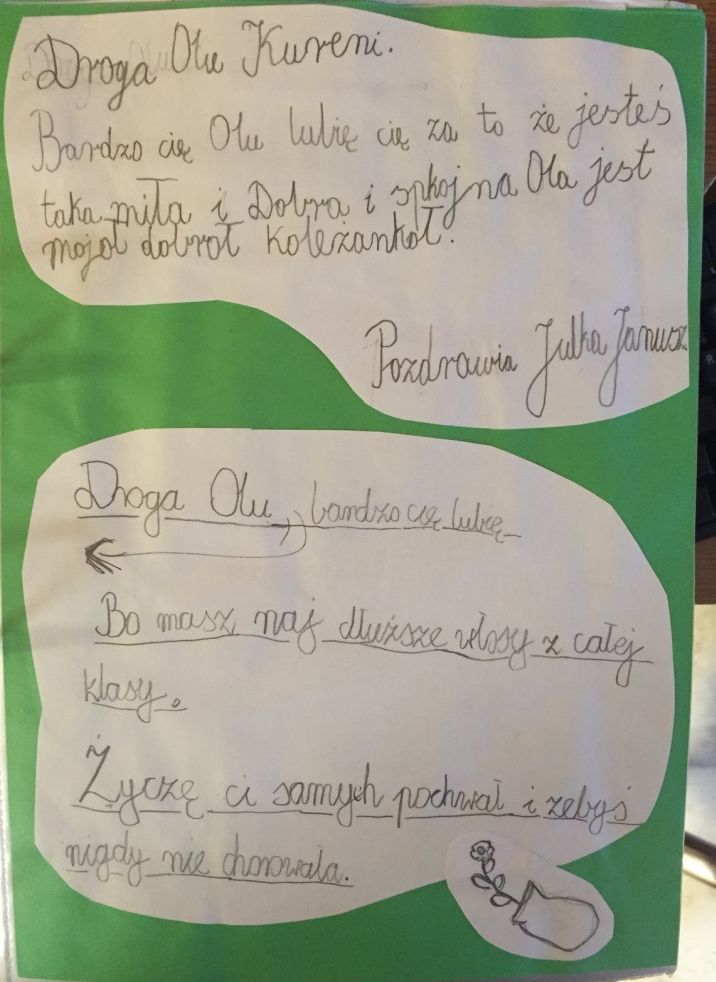 Droga Olu Kureni.
Bardzo cię Olu lubię cię za to że jesteś
taka miła i Dobra i spkojna Ola jest
mojoł dobroł koleżankoł.
Pozdrawia Julka Janusz
Droga Olu, bardzo cię lubię
Bo masz naj dłuższe włosy z całej
klasy.
Życzę ci samych pochwał i żebyś
nigdy nie chorowała.